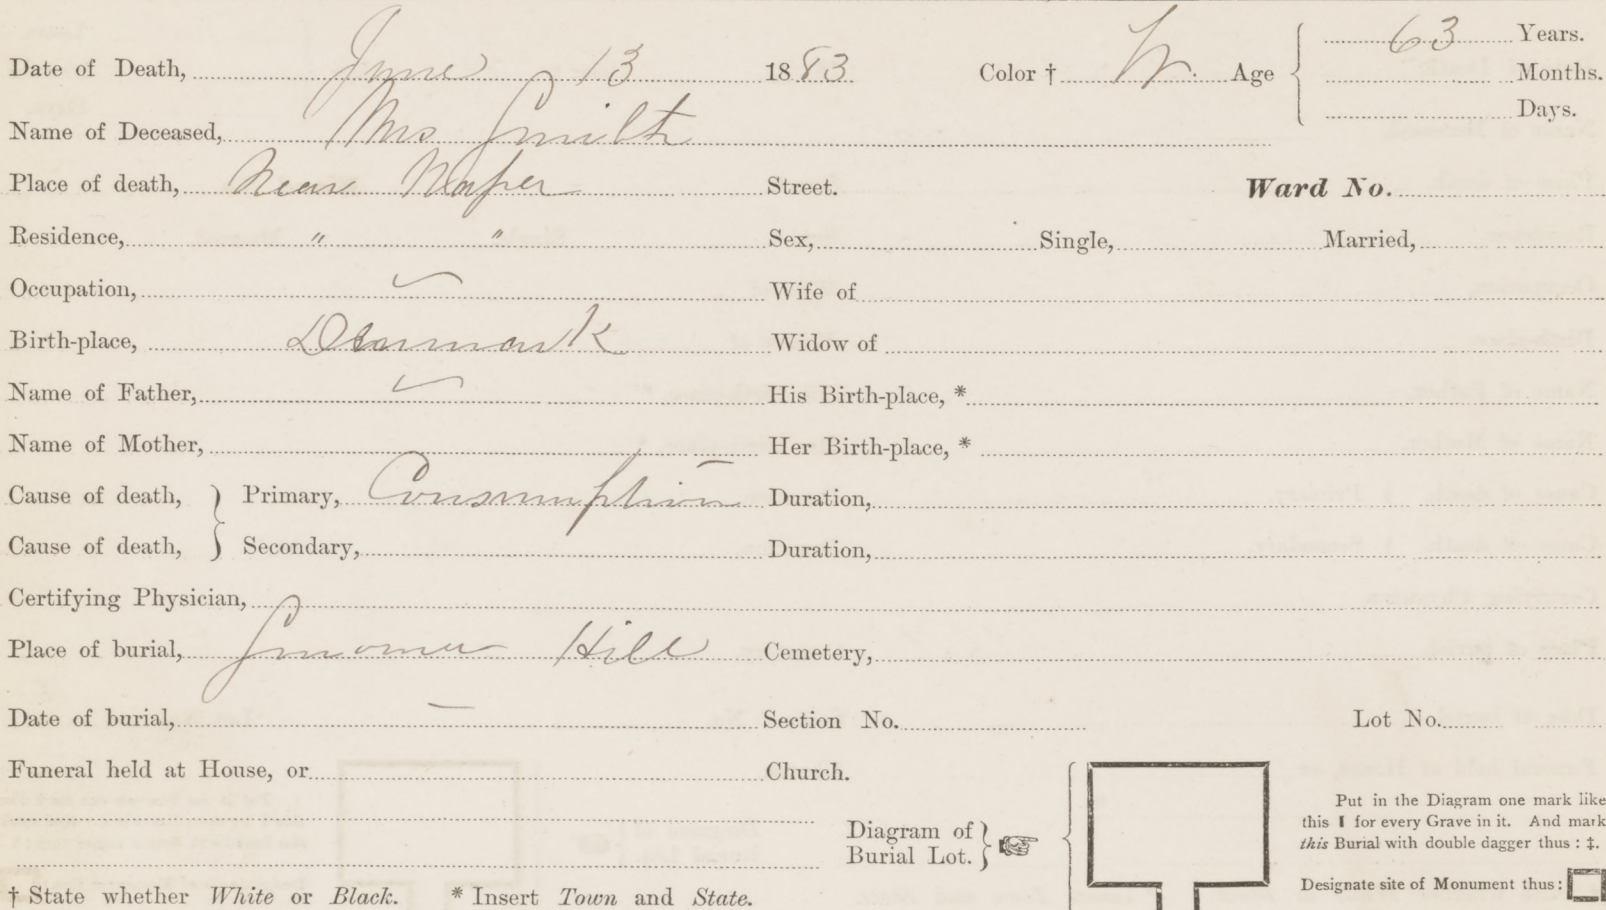 Date of Death, June 13 1883 Color † W. Age 63 Years.
Months.
Days.
Name of Deceased, Mrs Smith
Place of death, Near Napa Street. Ward No.
Residence, " " Sex, Single, Married,
Occupation, Wife of
Birth-place, Denmark Widow of
Name of Father, His Birth-place, *
Name of Mother, Her Birth-place, *
Cause of death, Primary, Consumption Duration,
Cause of death, Secondary, Duration,
Certifying Physician,
Place of burial, Hill Cemetery,
Date of burial, — Section No. Lot No.
Funeral held at House, or Church.
Diagram of
Burial Lot.
Put in the Diagram one mark like
this I for every Grave in it. And mark
this Burial with double dagger thus : ‡.
Designate site of Monument thus :
† State whether White or Black. * Insert Town and State.